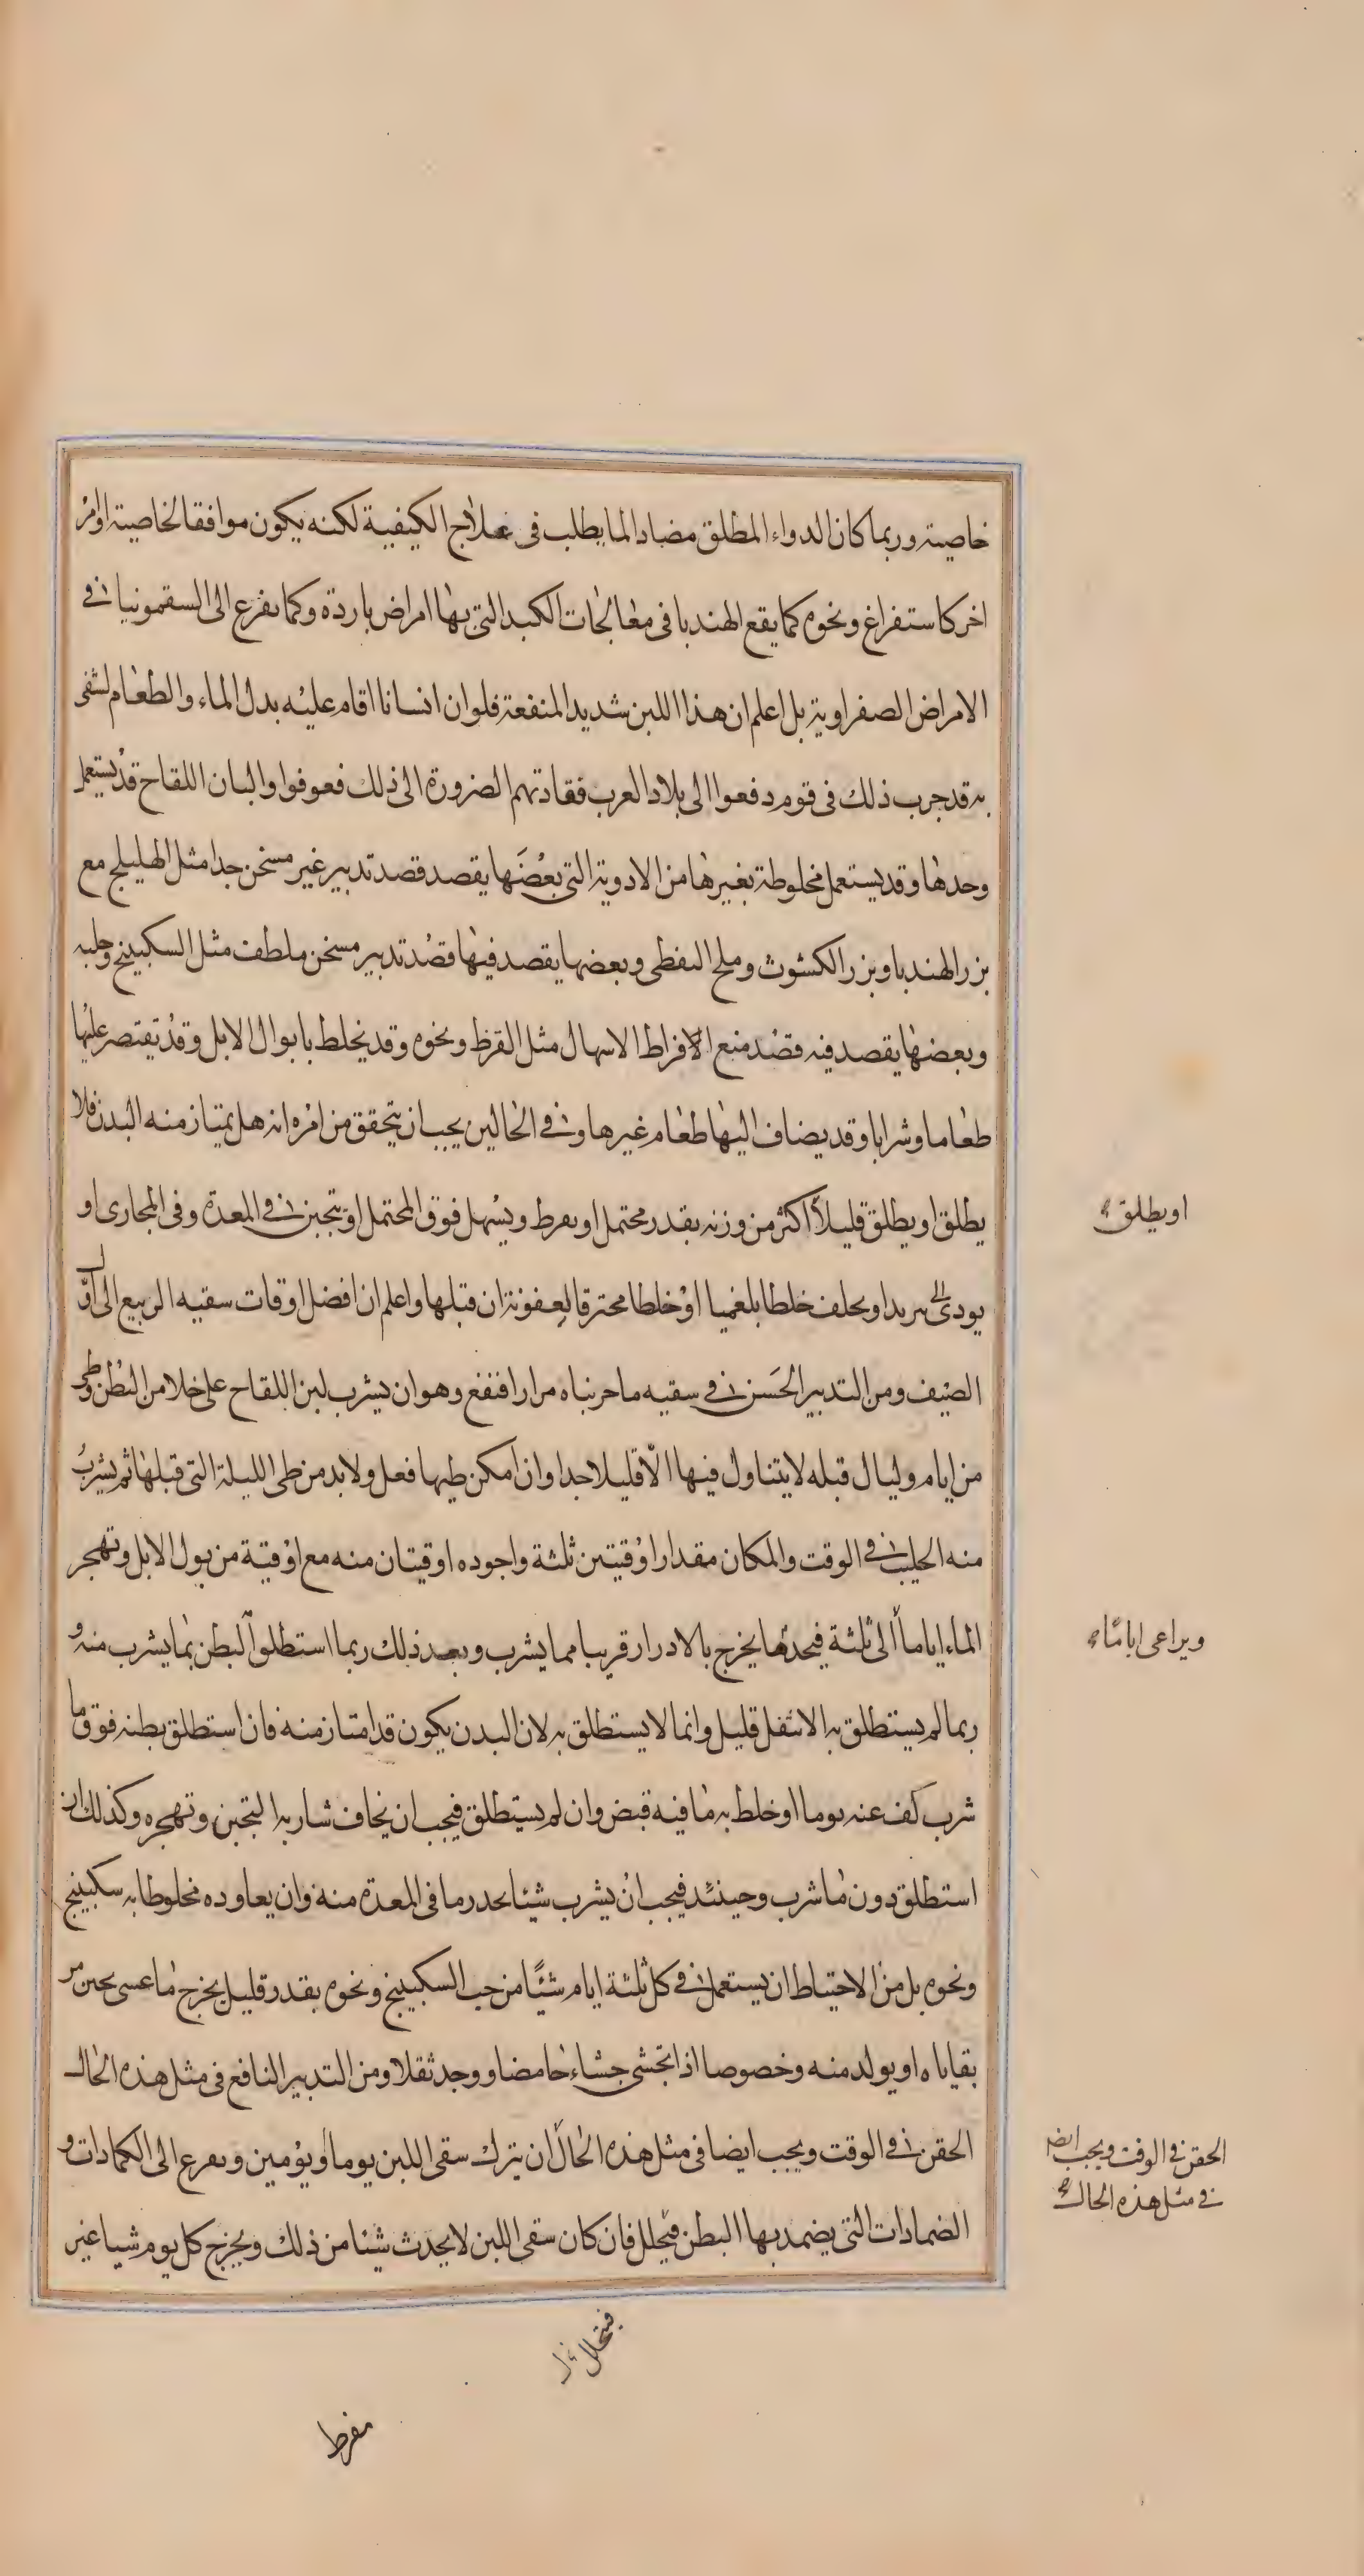 خاصيته وربما كان الدواء المطلق مضادا لما يطلب فى علاج الكيفية لكنه يكون موافقا لخاصيته او امر
اخر كاستفراغ ونحوه كما يقع الهندبا فى معالجات الكبد التى بها امراض باردة وكما يفزع الى السقمونيا فى
الامراض الصفراوية بل اعلم ان هذا اللبن شديد المنفعة فلو ان انسانا اقام عليه بدل الماء والطعام لشفى
به قد جرب ذلك فى قوم دفعوا الى بلاد العرب فقادتهم الضرورة الى ذلك فعوفوا والبان اللقاح قد يستعمل
وحدها وقد يستعمل مخلوطة بغيرها من الادوية التى بعضها يقصد قصد تدبير غير مسخن جدا مثل الهليلج مع
بزر الهندبا وبزر الكشوث وملح النفطى وبعضها يقصد فيها قصد تدبير مسخن ملطف مثل السكبينج وحبه
وبعضها يقصد فيه قصد منع الافراط الاسهال مثل القرظ ونحوه وقد يخلط بابوال الابل وقد يقتصر عليها
طعاما وشرابا وقد يضاف اليها طعام غيرها وفى الحالين يجب ان يتحقق من امره انه هل يمتاز منه البدن فلا
يطلق او يطلق قليلا اكثر من وزنه بقدر محتمل او يفرط ويسهل فوق المحتمل او يتجبن فى المعدة وفى المجارى او
يودى الى تبريد او يخلف خلطا بلغميا او خلطا محترقا لعفونة ان قبلها واعلم ان افضل اوقات سقيه الربيع الى اول
الصيف ومن التدبير الحسن فى سقيه ما جربناه مرارا فنفع وهو ان يشرب لبن اللقاح على خلا من البطن وطى
من ايام وليال قبله لا يتناول فيها الا قليلا جدا وان امكن طيها فعل ولا بد من طى الليلة التى قبلها ثم يشرب
منه الحليب فى الوقت والمكان مقدار اوقيتين ثلثة واجوده اوقيتان منه مع اوقية من بول الابل وتهجر
الماء اياما الى ثلثة فيجدها يخرج بالادرار قريبا مما يشرب وبعد ذلك ربما استطلق البطن بما يشرب منه و
ربما لم يستطلق به الا بثفل قليل وانما لا يستطلق به لان البدن يكون قد امتاز منه فان استطلق بطنه فوق ما
شرب كف عنه يوما او خلط به ما فيه قبض وان لم يستطلق فيجب ان يخاف شاربه التجبن وتهجره وكذلك ان
استطلق دون ما شرب وحينئذ فيجب ان يشرب شيئا يحدر ما فى المعدة منه وان يعاوده مخلوطا به سكبينج
ونحوه بل من الاحتياط ان يستعمل فى كل ثلثة ايام شيئا من حب السكبينج ونحوه بقدر قليل يخرج ما عسى تجبن من
بقاياه او يولد منه وخصوصا اذا تجشى جشاء حامضا ووجد ثقلا ومن التدبير النافع فى مثل هذه الحال
الحقن فى الوقت ويجب ايضا فى مثل هذه الحال ان يترك سقى اللبن يوما او يومين ويفزع الى الكمادات و
الضمادات التى يضمد بها البطن فيحلل فان كان سقى اللبن لا يحدث شيئا من ذلك ويخرج كل يوم شيا غير
او يطلق
ويراعى اياما
الحقن فى الوقت ويجب ايضا
فى مثل هذه الحال
فيتحلل
مفرط